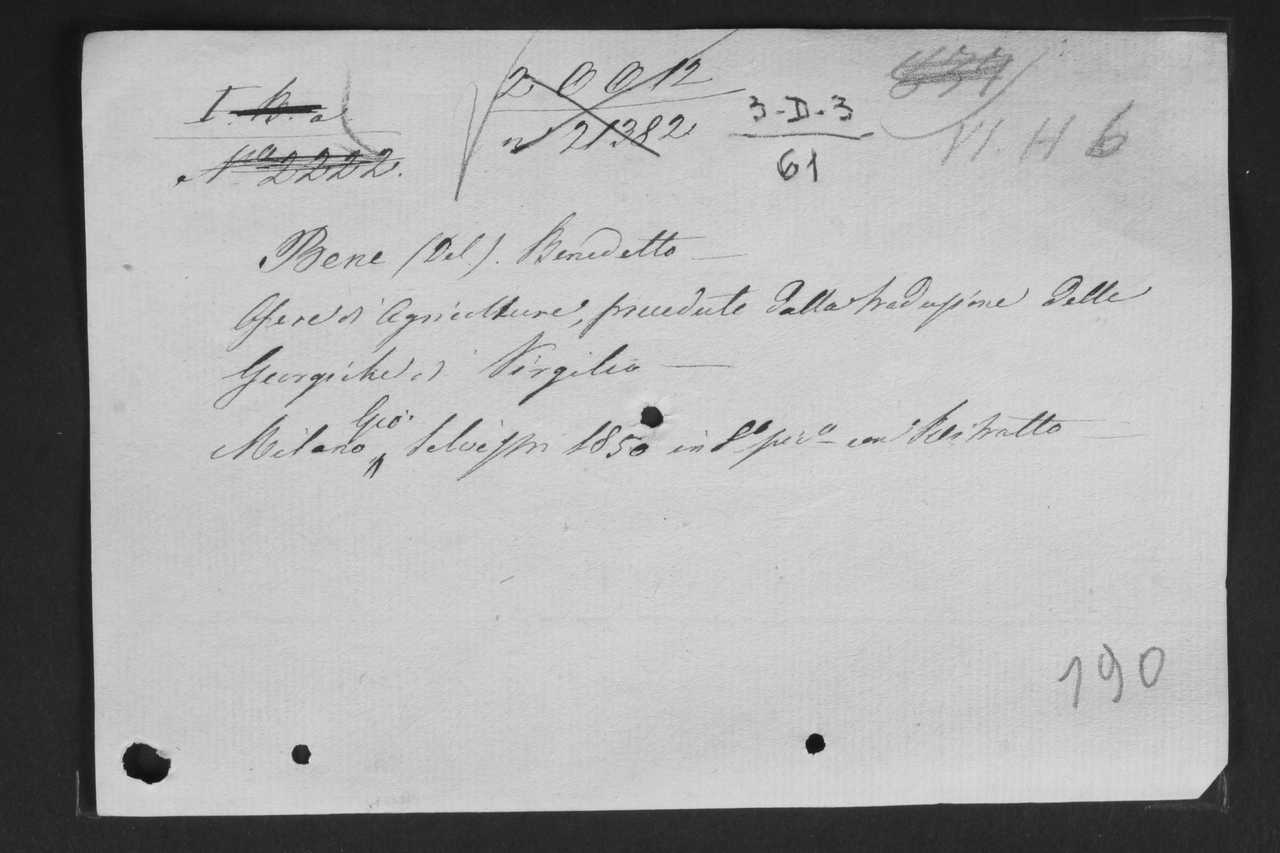 I. B. a.
Nº 2222.
2 0 0 12
nº 21382
3-D-3
61
VI. H 6
Bene (Del). Benedetto —
Opere d'Agricoltura, precedute dalla traduzione delle
Georgiche di Virgilio —
Milano Gio. Silvestri 1850 in 8º picº con Ritratto —
190